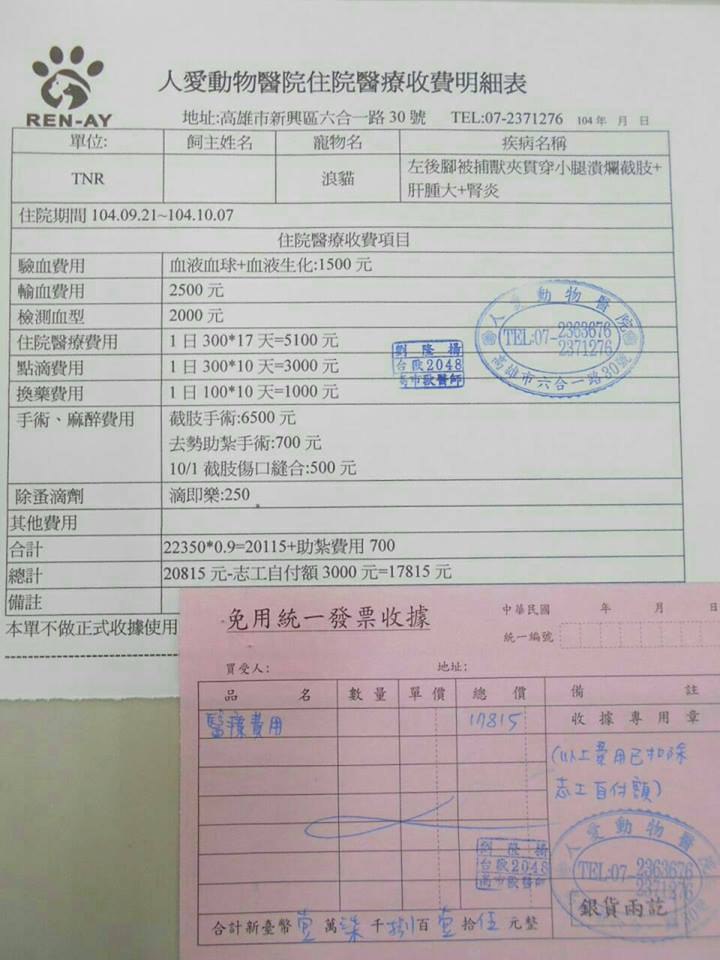 REN-AY
人愛動物醫院住院醫療收費明細表
地址:高雄市新興區六合一路30號 TEL:07-2371276 104年 月 日
單位: 飼主姓名 寵物名 疾病名稱
TNR 浪貓 左後腳被捕獸夾貫穿小腿潰爛截肢+
肝腫大+腎炎
住院期間 104.09.21~104.10.07
住院醫療收費項目
驗血費用 血液血球+血液生化:1500 元
輸血費用 2500 元
檢測血型 2000 元
住院醫療費用 1 日 300*17 天=5100 元
點滴費用 1 日 300*10 天=3000 元
換藥費用 1 日 100*10 天=1000 元
手術、麻醉費用 截肢手術:6500 元
去勢助紮手術:700 元
10/1 截肢傷口縫合:500 元
除蚤滴劑 滴即樂:250
其他費用
合計 22350*0.9=20115+助紮費用 700
總計 20815 元-志工自付額 3000 元=17815 元
備註
本單不做正式收據使用
劉隆揚
台獸2048
高市獸醫師
人愛動物醫院
TEL:07-2363676
2371276
高雄市六合一路30號
免用統一發票收據
中華民國 年 月 日
統一編號
買受人: 地址:
品名 數量 單價 總價 備註
醫療費用 17815 收據專用章
(以上費用已扣除
志工自付額)
劉隆揚
台獸2048
高市獸醫師
人愛動物醫
TEL:07-2363676
2371276
銀貨兩訖
合計新臺幣壹萬柒千捌百壹拾伍元整